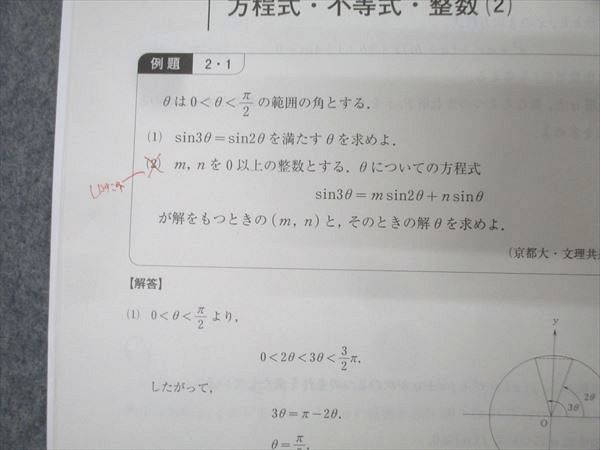 方程式・不等式・整数(2)
例題 2・1
θは0<θ<π/2の範囲の角とする.
(1) sin3θ=sin2θを満たすθを求めよ.
(2) m, nを0以上の整数とする. θについての方程式
sin3θ=m sin2θ+n sinθ
が解をもつときの(m, n)と, そのときの解θを求めよ.
(京都大・文理共
【解答】
(1) 0<θ<π/2より,
0<2θ<3θ<3/2π.
y
したがって,
2θ
3θ
3θ=π-2θ.
O
θ=π